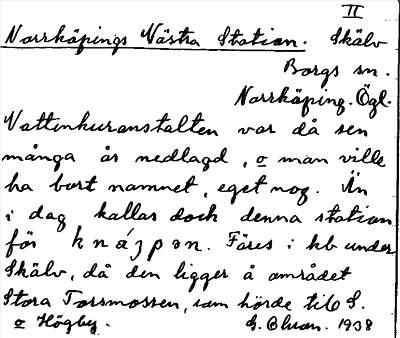 II
Norrköpings Västra Station. Skälv
Borgs sn.
Norrköping. Ögl.
Vattenkuranstalten var då sen
många år nedlagd, o man ville
ha bort namnet, eget nog. Än
i dag kallas dock denna station
för knájpən. Föres i kb under
Skälv, då den ligger å området
Stora Torsmossen, som hörde till S.
o Högby. 1938